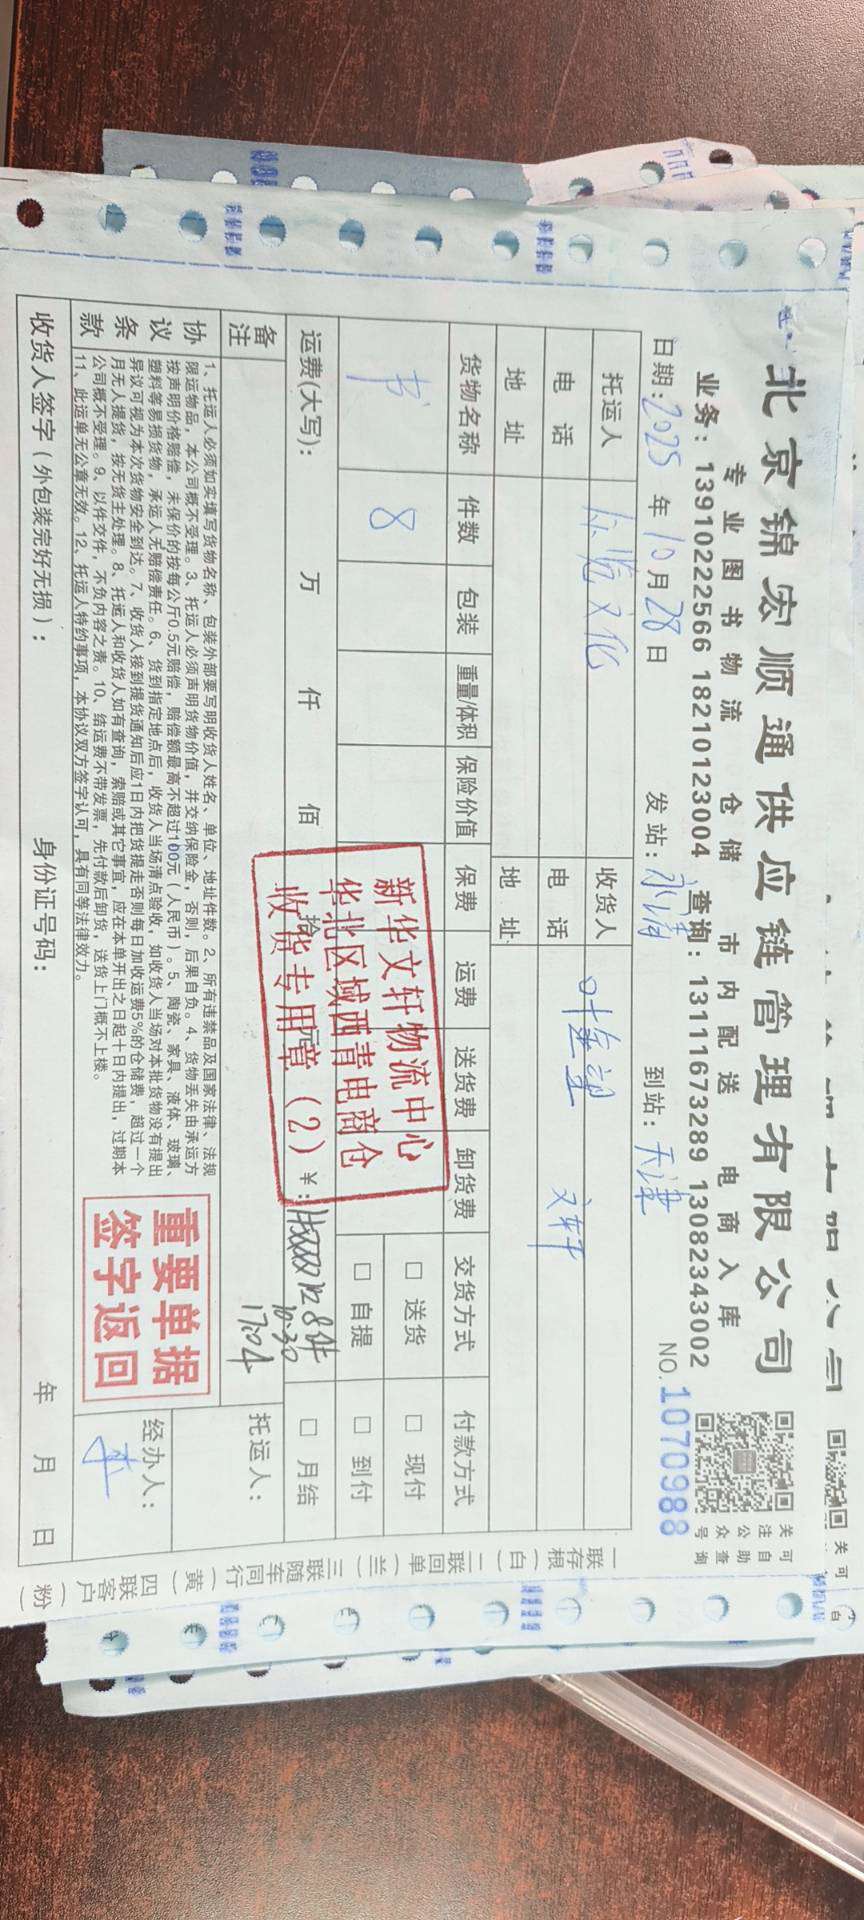 北京锦宏顺通供应链管理有限公司
专业图书物流 仓储 市内配送 电商入库
业务：13910222566 18210123004 查询：13111673289 13082343002
关注公众号
可自助查询
日期：2025年10月28日 发站：永清 到站：天津 NO.1070988
托运人 收货人 叶连望
电话 电话 文轩
地址 地址
货物名称 件数 包装 重量/体积 保险价值 保费 运费 送货费 卸货费 交货方式 付款方式
书 8 □ 送货 □ 现付
□ 自提 □ 到付
运费(大写)： 万 仟 佰 拾 元 ¥： □ 月结
8件
10.30
备注
托运人：
新华文轩物流中心
华北区域西青电商仓
收货专用章（2）
协议条款
1、托运人必须如实填写货物名称、包装外部要写明收货人姓名、单位、地址件数。2、所有违禁品及国家法律、法规
限运物品，本公司概不受理。3、托运人必须声明货物价值，并交纳保险金，否则，后果自负。4、货物丢失由承运方
按声明价格赔偿，未保价的按每公斤0.5元赔偿，赔偿额最高不超过100元（人民币）。5、陶瓷、家具、液体、玻璃、
塑料等易损货物，承运人无赔偿责任。6、货到指定地点后，收货人当场清点验收，如收货人当场对本批货物没有提出
异议可视为本次货物安全到达。7、收货人接到提货通知后应1日内把货提走否则每日加收运费5%的仓储费，超过一个
月无人提货，按无货主处理。8、托运人和收货人如有查询，索赔或其它事宜，应在本单开出之日起十日内提出，过期本
公司概不受理。9、以件交件，不负内容之责。10、结运费不带发票，先付款后卸货，送货上门概不上楼。
11、此运单无公章无效。12、托运人特约事项，本协议双方签字认可，具有同等法律效力。
重要单据
签字返回
经办人：
收货人签字（外包装完好无损）： 身份证号码： 年 月 日
一联存根（白） 二联回单（兰） 三联随车同行（黄） 四联客户（粉）